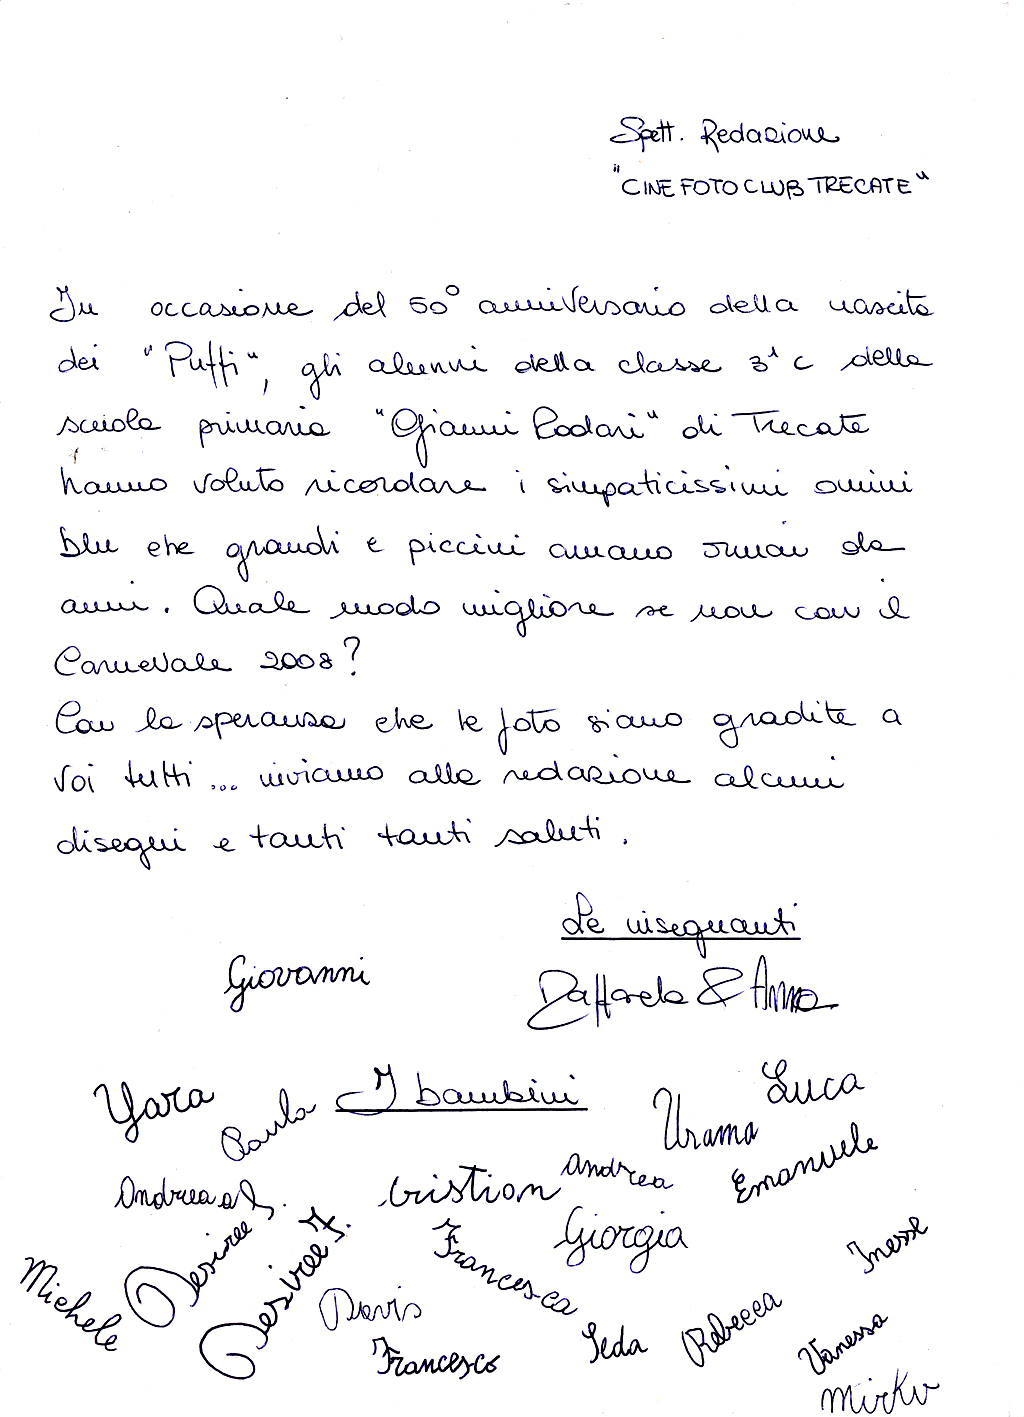 Spett. Redazione
"CINE FOTO CLUB TRECATE"
In occasione del 50° anniversario della nascita
dei "Puffi", gli alunni della classe 3ᴬ C della
scuola primaria "Gianni Rodari" di Trecate
hanno voluto ricordare i simpaticissimi omini
blu che grandi e piccini amano ormai da
anni. Quale modo migliore se non con il
Carnevale 2008?
Con la speranza che le foto siano gradite a
voi tutti... inviamo alla redazione alcuni
disegni e tanti tanti saluti.
Le insegnanti
Giovanni
Raffaela & Anna
I bambini
Yara
Paula
Luca
Andrea
Emanuele
Andrea
Cristian
Giorgia
Desiree
Desiree
Francesca
Inesse
Michele
Davis
Francesco
Rebecca
Vanessa
Mirko